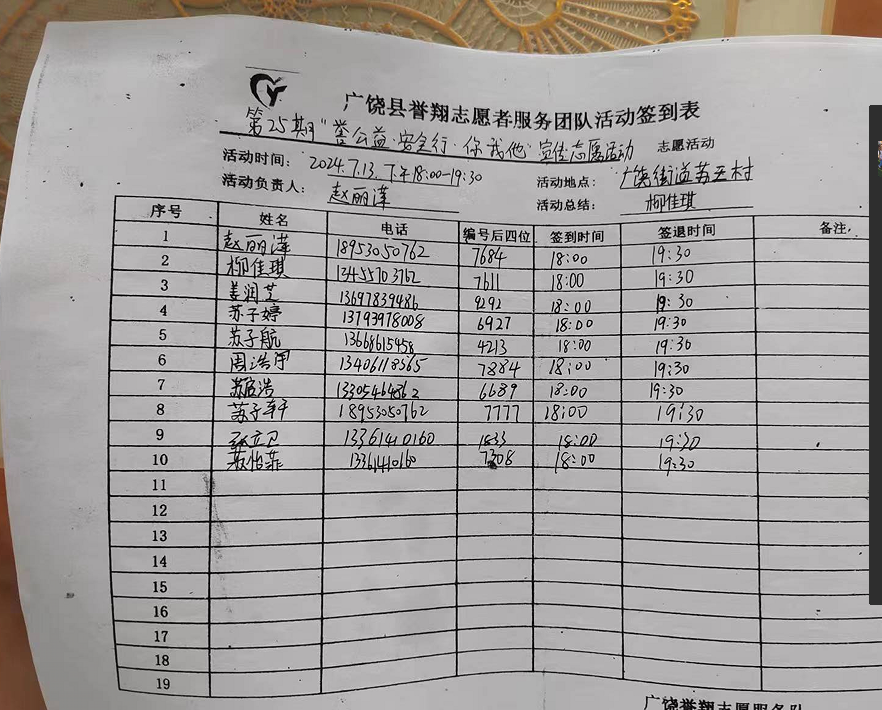 广饶县誉翔志愿者服务团队活动签到表
第25期"誉公益·安全行·你我他"宣传志愿活动 志愿活动
活动时间: 2024.7.13 下午18:00-19:30 活动地点: 广饶街道苏王村
活动负责人: 赵丽萍 活动总结: 柳佳琪
序号 姓名 电话 编号后四位 签到时间 签退时间 备注
1 赵丽萍 18953050762 7684 18:00 19:30
2 柳佳琪 13455703762 7611 18:00 19:30
3 姜润芝 13697839486 9292 18:00 19:30
4 苏子婷 13793978008 6927 18:00 19:30
5 苏子航 13668615458 4213 18:00 19:30
6 周浩宇 13406118565 7884 18:00 19:30
7 浩 13305464862 6689 18:00 19:30
8 苏子轩 18953050762 7777 18:00 19:30
9 立卫 13361410160 1833 18:00 19:30
10 苏怡菲 13361410160 7308 18:00 19:30
11
12
13
14
15
16
17
18
19
广饶誉翔志愿服务队